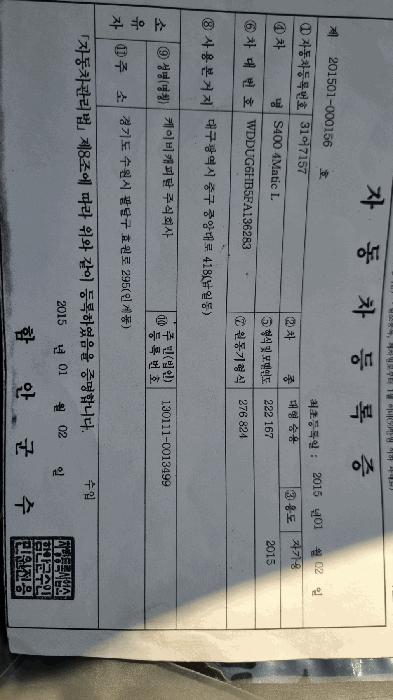 자 동 차 등 록 증
제 201501-000156 호
최초등록일 : 2015 년 01 월 02 일
① 자동차등록번호 31어7157 ② 차 종 대형 승용 ③ 용도 자가용
④ 차 명 S400 4Matic L ⑤ 형식 및 모델연도 222 167 2015
⑥ 차 대 번 호 WDDUG6HB5FA136283 ⑦ 원동기형식 276 824
⑧ 사용본거지 대구광역시 중구 중앙대로 418(남일동)
소 유 자
⑨ 성명(명칭) 케이비캐피탈 주식회사 ⑩ 주민(법인)등록번호 130111-0013499
⑪ 주 소 경기도 수원시 팔달구 효원로 295(인계동)
「자동차관리법」 제8조에 따라 위와 같이 등록하였음을 증명합니다.
수입
2015 년 01 월 02 일
함 안 군 수